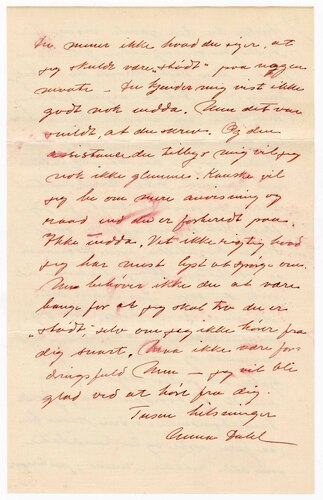 Du mener ikke hvad du siger, at
jeg skulde være "stødt" paa nogen
maate – Du kjender mig vist ikke
godt nok endda. Men det var
snildt, at du skrev. Og den
assistance du tillbyr mig vil jeg
nok ikke glemme. Kanske vil
jeg be om mere anvisning og
raad end du er forberedt paa.
Ikke endda. Vet ikke rigtig hvad
jeg har mest lyst at spørge om.
Men behøver ikke du at være
bange for at jeg skal tro du er
"stødt," selv om jeg ikke hører fra
dig snart. Maa ikke være for-
dringsfuld Men – jeg vil bli
glad ved at høre fra dig.
Tusen hilsninger
Anna Dahl